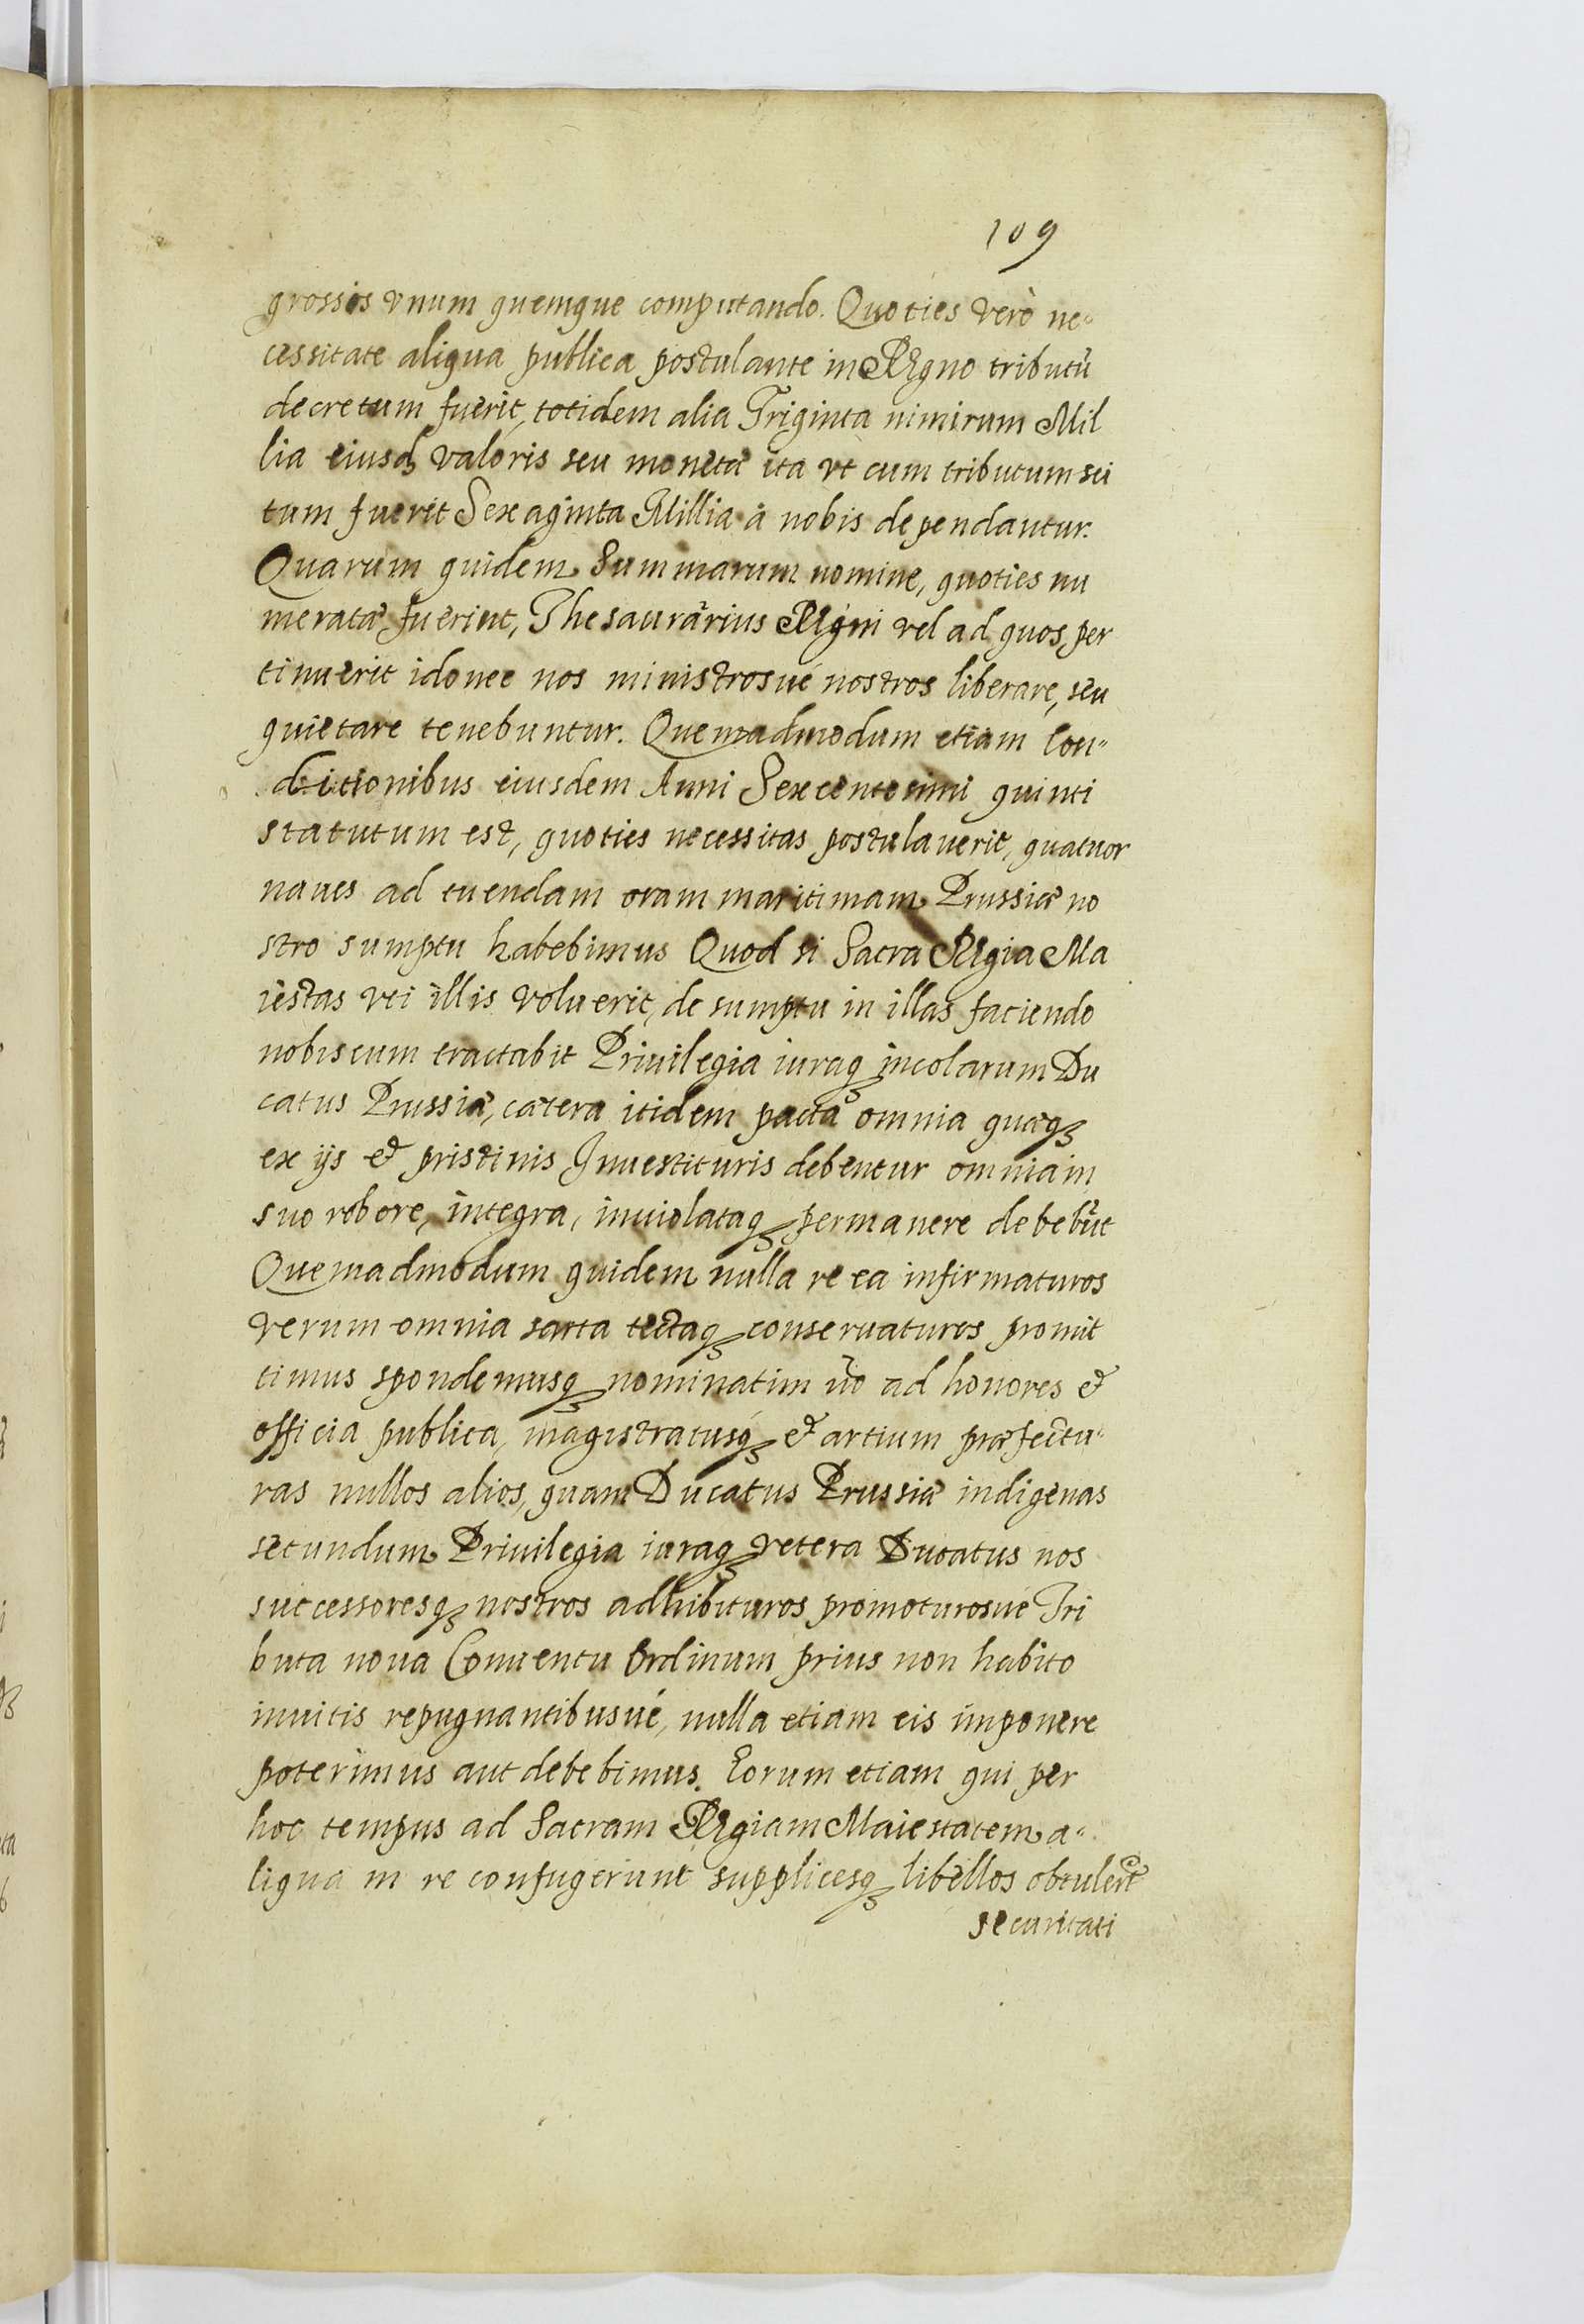 109
grossos vnum quemque computando. Quoties verò ne-
cessitate aliqua publica postulante in Regno tributũ
decretum fuerit, totidem alia Triginta nimirum Mil
lia eiusdȝ valoris seu monetæ ita vt cum tributum sci
tum fuerit Sexaginta Millia à nobis dependantur.
Quarum quidem Summarum nomine, quoties nu
meratæ fuerint, Thesaurarius Regni vel ad quos per
tinuerit idonee nos ministrosué nostros liberare, seu
quietare tenebuntur. Quemadmodum etiam Con-
ditionibus eiusdem Anni Sexcentesimi quinti
statutum est, quoties necessitas postulauerit, quatuor
naues ad tuendam oram maritimam Prussiæ no
stro sumptu habebimus Quod si Sacra Regia Ma
iestas vti illis voluerit, de sumptu in illas faciendo
nobiscum tractabit Priuilegia iuraqȝ incolarum Du
catus Prussiæ, cætera itidem pacta omnia quæqȝ
ex ijs & pristinis Inuestituris debentur omnia in
suo robore, integra, inuiolataqȝ permanere debebũt
Quemadmodum quidem nulla re ea infirmaturos
verum omnia sarta tectaqȝ conseruaturos promit
timus spondemusqȝ nominatim ũo ad honores &
officia publica, magistratusqȝ & artium præfectu-
ras nullos alios, quam Ducatus Prussiæ indigenas
secundum Priuilegia iuraqȝ vetera Ducatus nos
successoresqȝ nostros adhibituros promoturosué Tri
buta noua Conuentu Ordinum prius non habito
inuitis repugnantibusué, nulla etiam eis imponere
poterimus aut debebimus. Eorum etiam qui per
hoc tempus ad Sacram Regiam Maiestatem a-
liqua in re confugerunt supplicesqȝ libellos obtulert̃
securitati